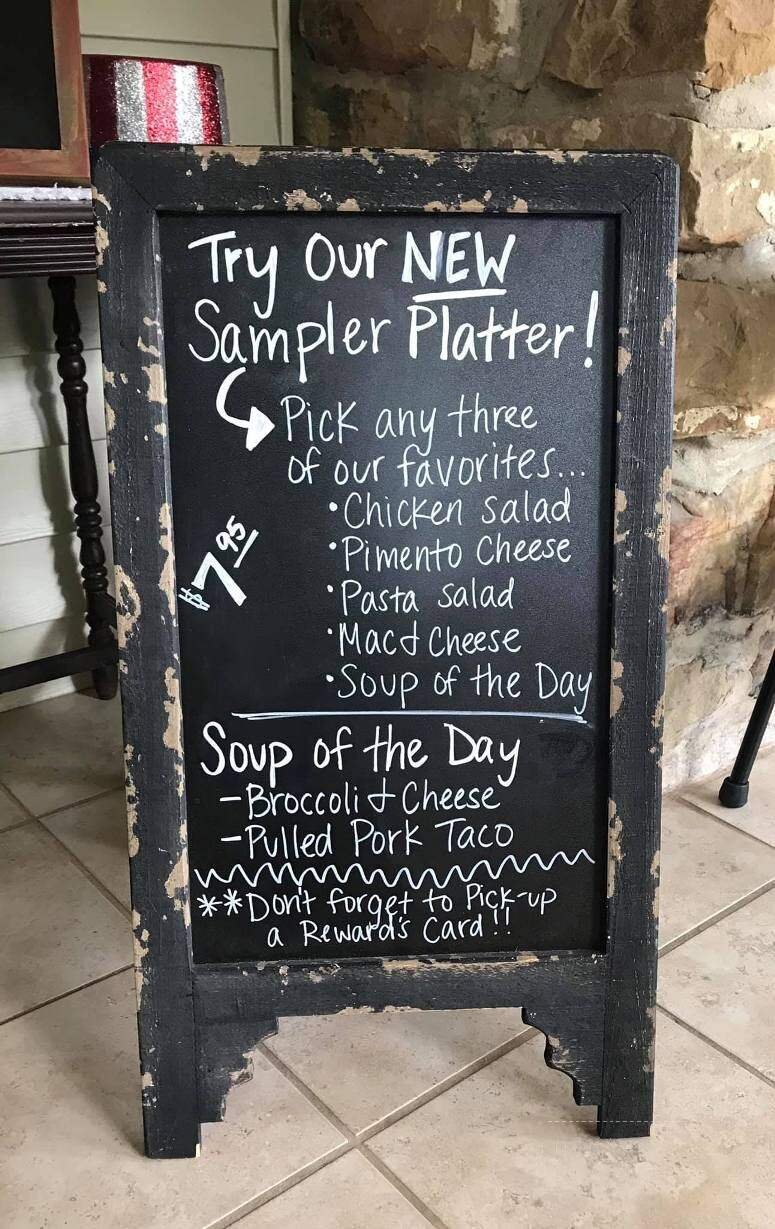 Try Our NEW
Sampler Platter!
Pick any three
of our favorites...
•Chicken Salad
•Pimento Cheese
•Pasta Salad
•Mac & Cheese
•Soup of the Day
$7.95
Soup of the Day
-Broccoli & Cheese
-Pulled Pork Taco
**Don't forget to Pick-up
a Reward's Card!!